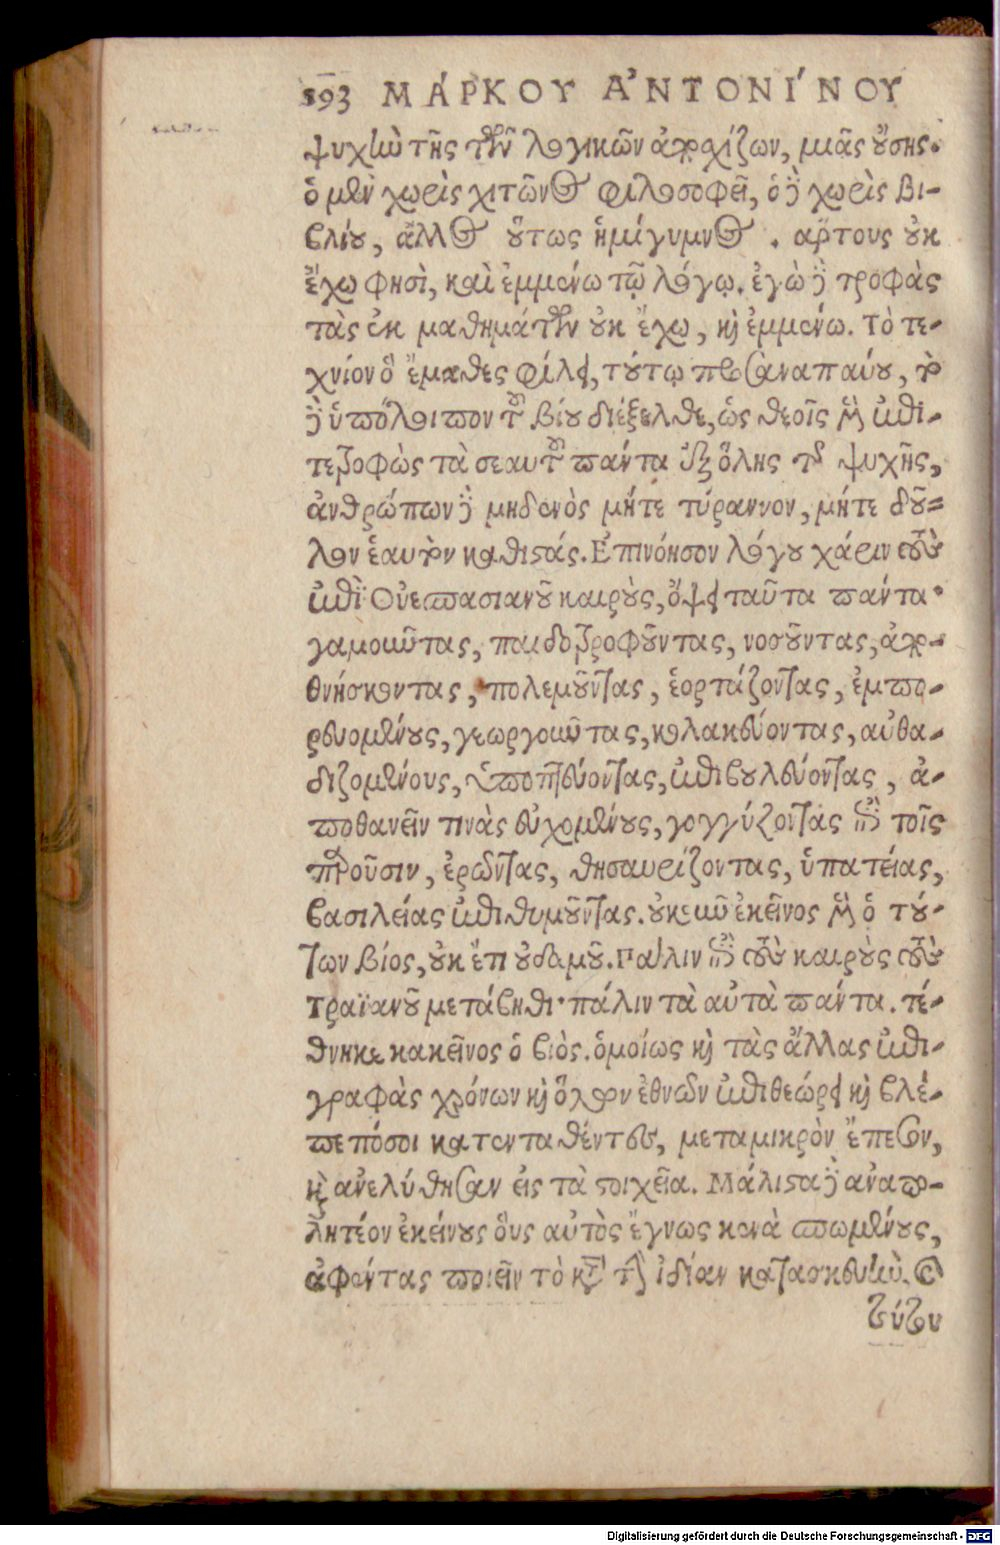 593 ΜΆΡΚΟΥ ἈΝΤΟΝΊΝΟΥ
ψυχὴν τῆς τῶν λογικῶν ἀποσχίζων, μιᾶς οὔσης.
ὁ μὲν χωρὶς χιτῶνος φιλοσοφεῖ, ὁ δὲ χωρὶς βι-
βλίου, ἄλλος οὕτως ἡμίγυμνος . ἄρτους οὐκ
ἔχω φησὶ, καὶ ἐμμένω τῷ λόγῳ. ἐγὼ δὲ τροφὰς
τὰς ἐκ μαθημάτων οὐκ ἔχω, καὶ ἐμμένω. τὸ τε-
χνίον ὃ ἔμαθες φίλει, τούτῳ προσαναπαύου, τὸ
δὲ ὑπόλοιπον τοῦ βίου διέξελθε, ὡς θεοῖς μὲν ἐπι-
τετροφὼς τὰ σεαυτοῦ πάντα ἐξ ὅλης τῆς ψυχῆς,
ἀνθρώπων δὲ μηδενὸς μήτε τύραννον, μήτε δοῦ-
λον ἑαυτὸν καθιστάς. Ἐπινόησον λόγου χάριν τοὺς
ἐπὶ Οὐεσπασιανοῦ καιροὺς, ὄψει ταῦτα πάντα·
γαμοῦντας, παιδοτροφοῦντας, νοσοῦντας, ἀπο-
θνήσκοντας, πολεμοῦντας, ἑορτάζοντας, ἐμπο-
ρευομένους, γεωργοῦντας, κολακεύοντας, αὐθα-
διζομένους, ὑποπτεύοντας, ἐπιβουλεύοντας, ἀ-
ποθανεῖν τινὰς εὐχομένους, γογγύζοντας ἐπὶ τοῖς
παροῦσιν, ἐρῶντας, θησαυρίζοντας, ὑπατείας,
βασιλείας ἐπιθυμοῦντας. οὐκοῦν ἐκεῖνος μὲν ὁ τού-
των βίος, οὐκ ἔτι οὐδαμοῦ. Πάλιν ἐπὶ τοὺς καιροὺς τοὺς
Τραϊανοῦ μετάβηθι· πάλιν τὰ αὐτὰ πάντα. τέ-
θνηκε κακεῖνος ὁ βιός. ὁμοίως καὶ τὰς ἄλλας ἐπι-
γραφὰς χρόνων καὶ ὅλων ἐθνῶν ἐπιθεώρει καὶ βλέ-
πε πόσοι κατενταθέντες, μεταμικρὸν ἔπεσον,
καὶ ἀνελύθησαν εἰς τὰ στοιχεῖα. Μάλιστα δὲ ἀναπο-
λητέον ἐκείνους οὓς αὐτὸς ἔγνως κενὰ σπωμένους,
ἀφέντας ποιεῖν τὸ κατὰ τὴν ἰδίαν κατασκευὴν. καὶ
τούτου
Digitalisierung gefördert durch die Deutsche Forschungsgemeinschaft - DFG